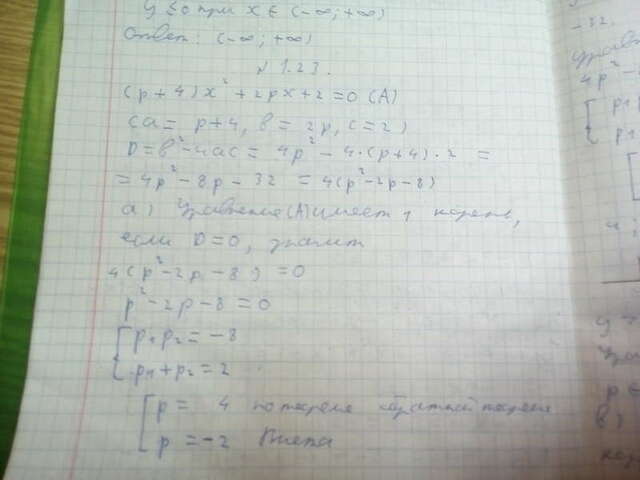 y ≤ 0 при x ∈ (-∞; +∞)
Ответ: (-∞; +∞)
№ 1.23.
(p+4)x² + 2px + 2 = 0 (A)
(a = p+4, b = 2p, c = 2)
D = b² - 4ac = 4p² - 4·(p+4)·2 =
= 4p² - 8p - 32 = 4(p² - 2p - 8)
а) Уравнение (A) имеет 1 корень,
если D = 0, значит
4(p² - 2p - 8) = 0
p² - 2p - 8 = 0
{ p₁p₂ = -8
p₁ + p₂ = 2
[ p = 4 по теореме обратной теореме
p = -2 Виета
-32.
4p² -